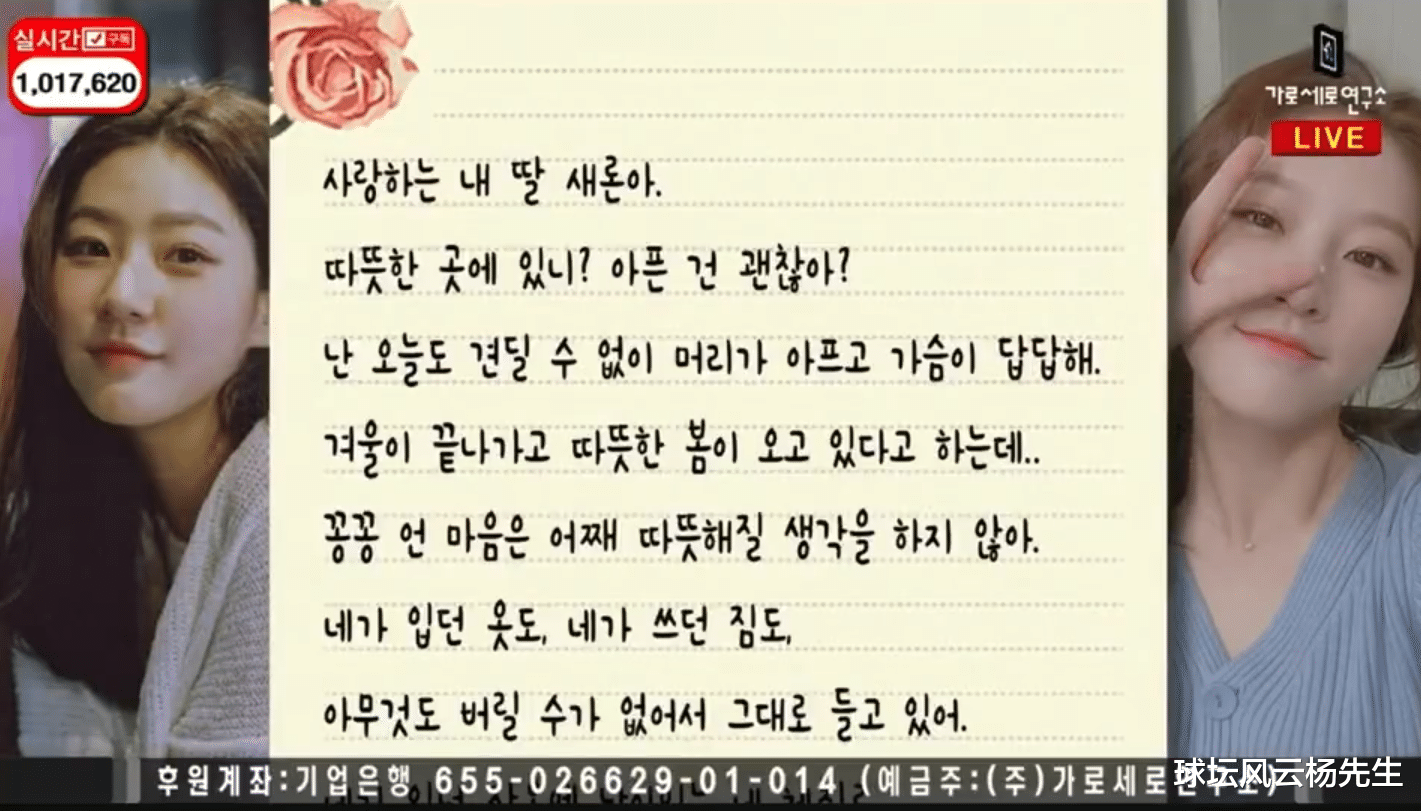 실시간 구독
1,017,620
가로세로연구소
LIVE
사랑하는 내 딸 새론아.
따뜻한 곳에 있니? 아픈 건 괜찮아?
난 오늘도 견딜 수 없이 머리가 아프고 가슴이 답답해.
겨울이 끝나가고 따뜻한 봄이 오고 있다고 하는데..
꽁꽁 언 마음은 어째 따뜻해질 생각을 하지 않아.
네가 입던 옷도, 네가 쓰던 짐도,
아무것도 버릴 수가 없어서 그대로 들고 있어.
후원계좌:기업은행 655-026629-01-014 (예금주:(주)가로세로연구소)
球坛风云杨先生